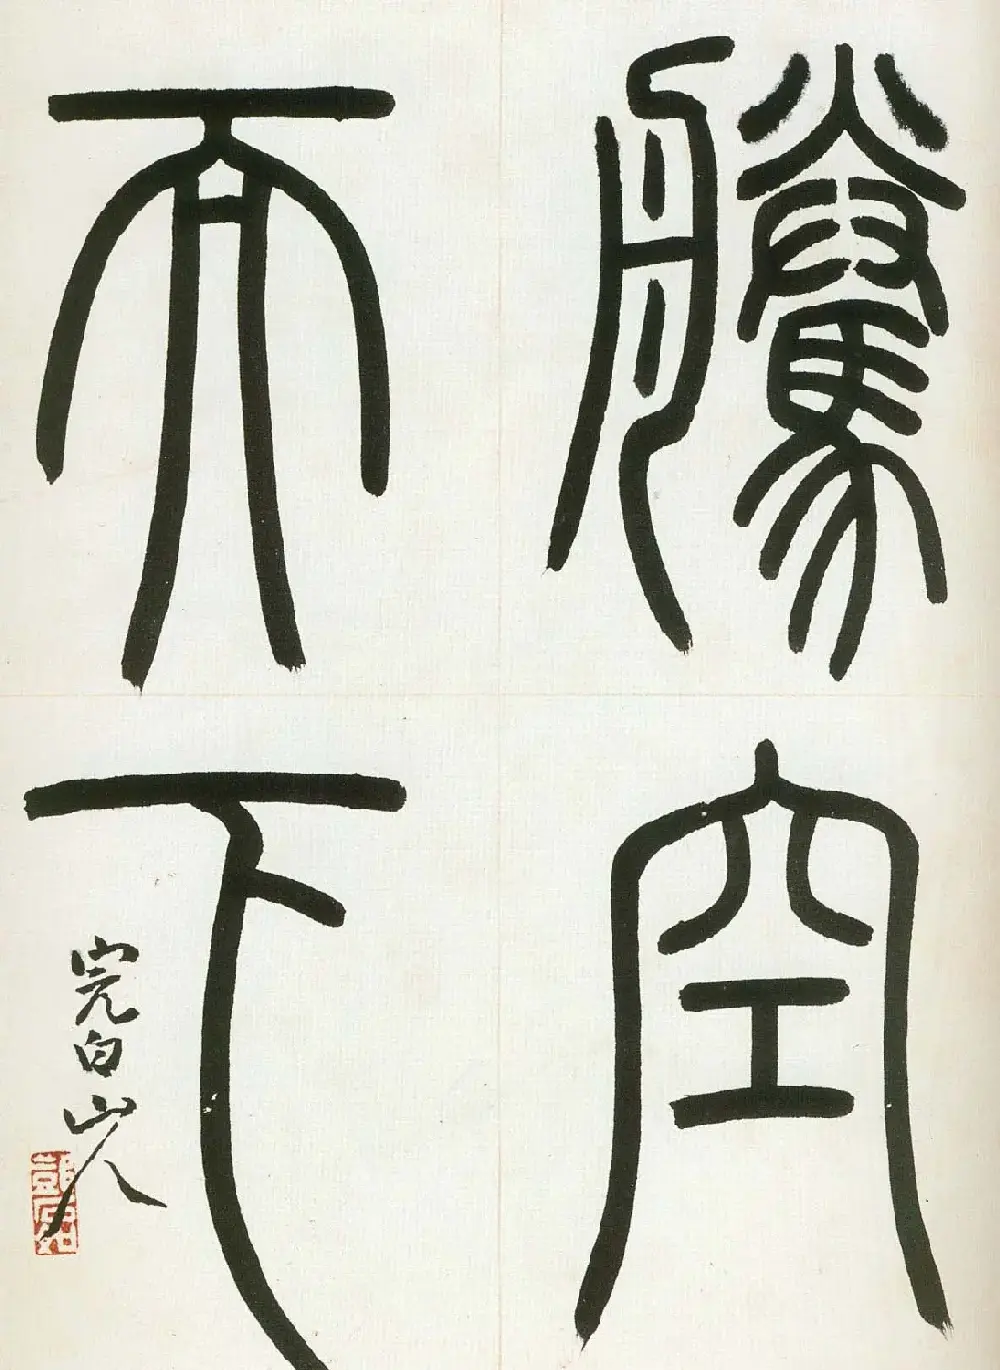 騰空
而下
完白山人